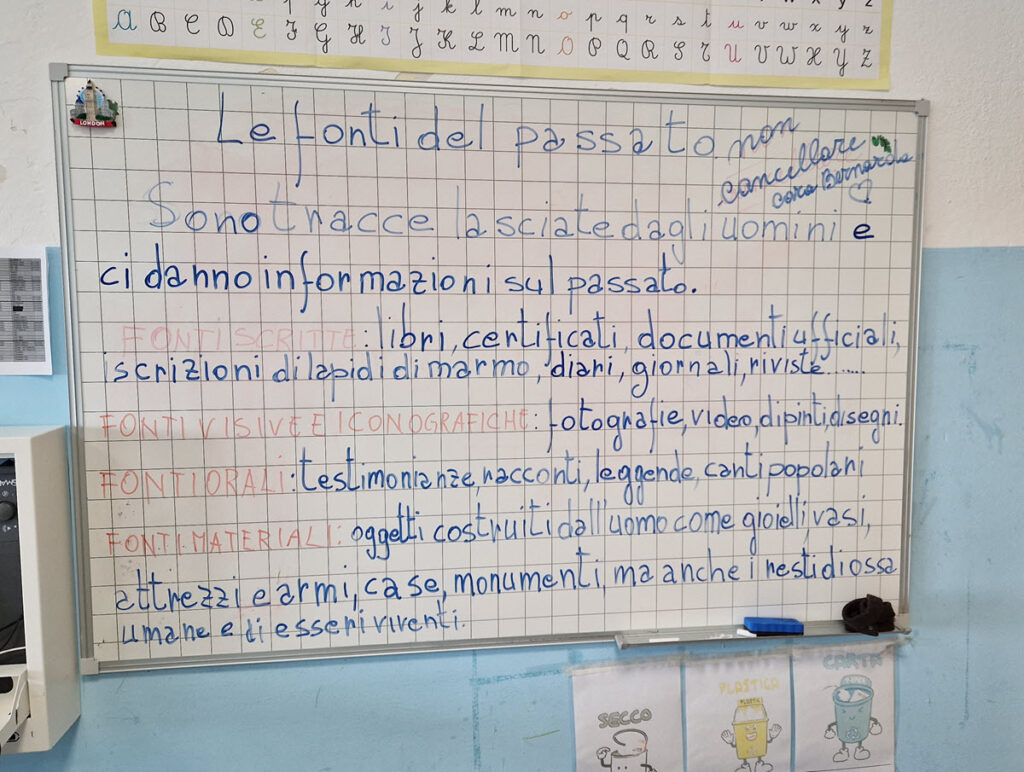 y k l m n o p q r s t u v w x y z
A B C D E F G H I J K L M N O P Q R S T U V W X Y Z
LONDON
Le fonti del passato
non
cancellare
cara Bernarda
Sono tracce lasciate dagli uomini e
ci danno informazioni sul passato.
FONTI SCRITTE: libri, certificati, documenti ufficiali,
iscrizioni di lapidi di marmo, diari, giornali, riviste......
FONTI VISIVE E ICONOGRAFICHE: fotografie, video, dipinti, disegni.
FONTI ORALI: testimonianze, racconti, leggende, canti popolari
FONTI MATERIALI: oggetti costruiti dall'uomo come gioielli, vasi,
attrezzi e armi, case, monumenti, ma anche i resti di ossa
umane e di esseri viventi.
SECCO
PLASTICA
CARTA